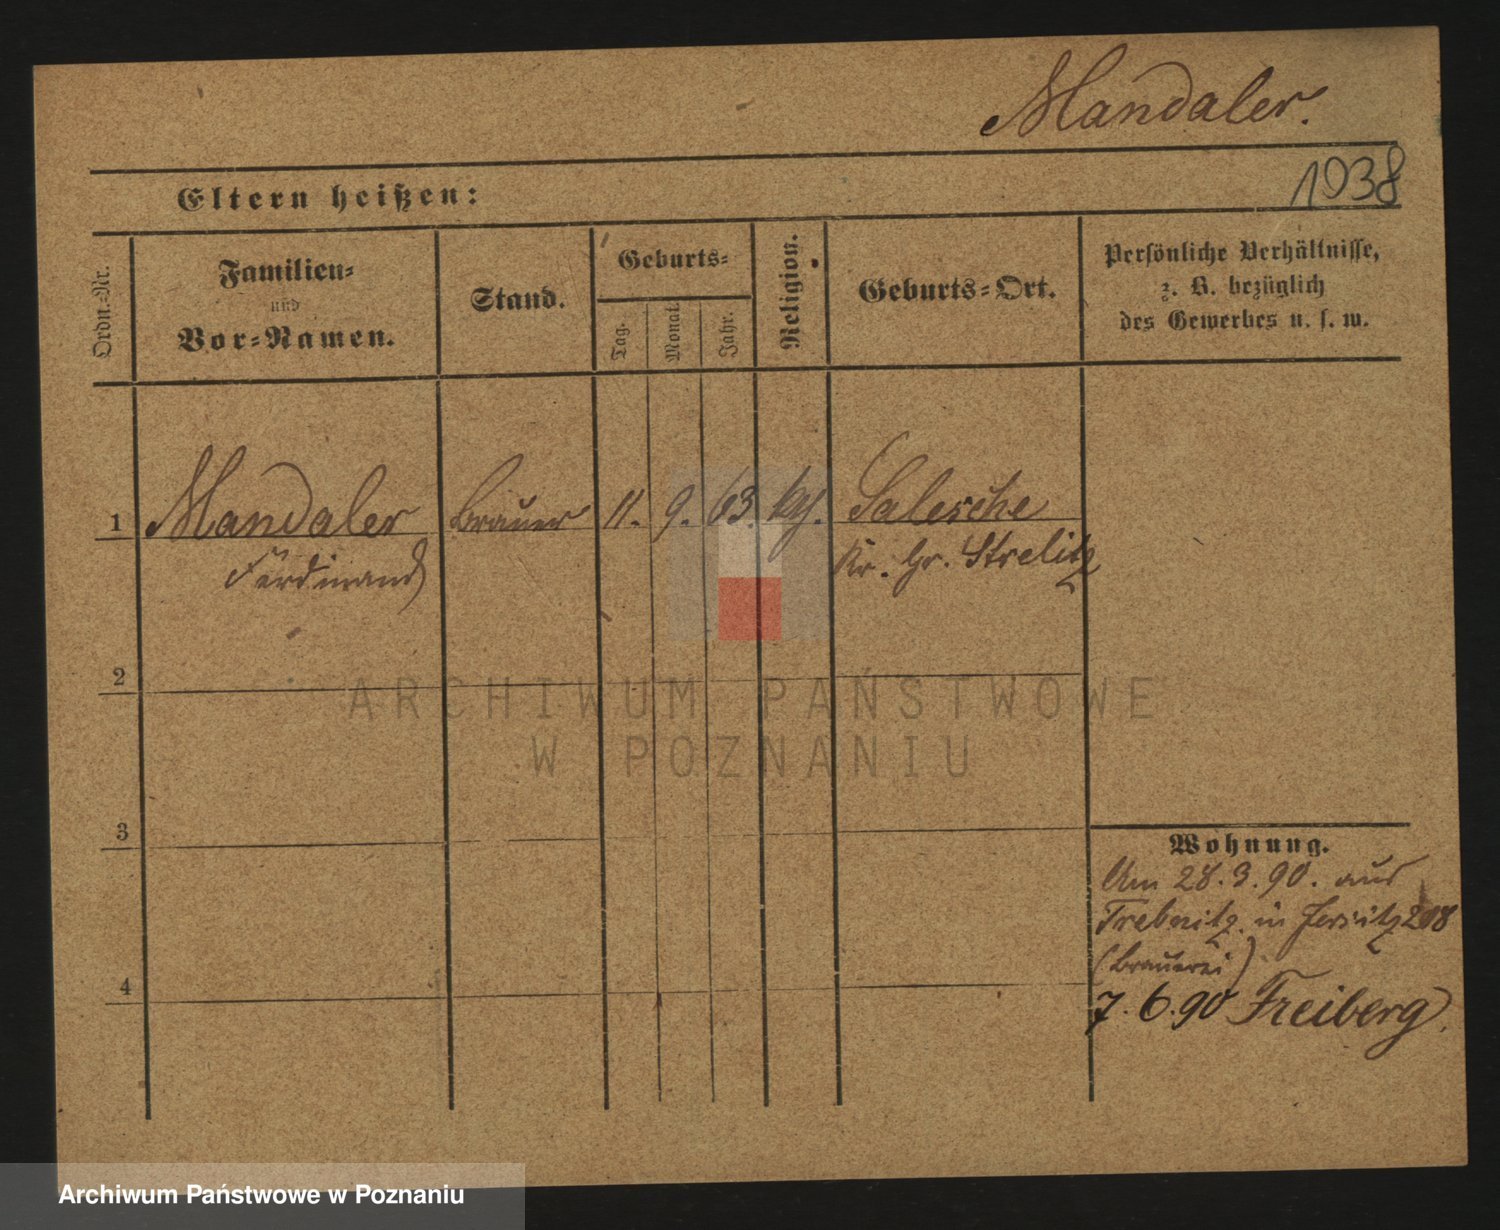 Mandaler.
1938
Eltern heißen:
Ordn.-Nr.
Familien-
und
Vor-Namen.
Stand.
Geburts-
Tag.
Monat.
Jahr.
Religion.
Geburts-Ort.
Persönliche Verhältnisse,
z. B. bezüglich
des Gewerbes u. s. w.
1
Mandaler
Ferdinand
Brauer
11.
9.
63.
kg.
Salesche
Kr. Gr. Strelitz
2
3
4
Wohnung.
Am 28.3.90. aus
Trebnitz in Jersitz 208
(Brauerei)
7.6.90 Freiberg.
ARCHIWUM PAŃSTWOWE
W POZNANIU
Archiwum Państwowe w Poznaniu